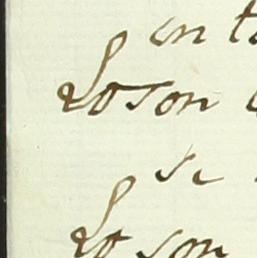 en t
Loson
se
Lo son